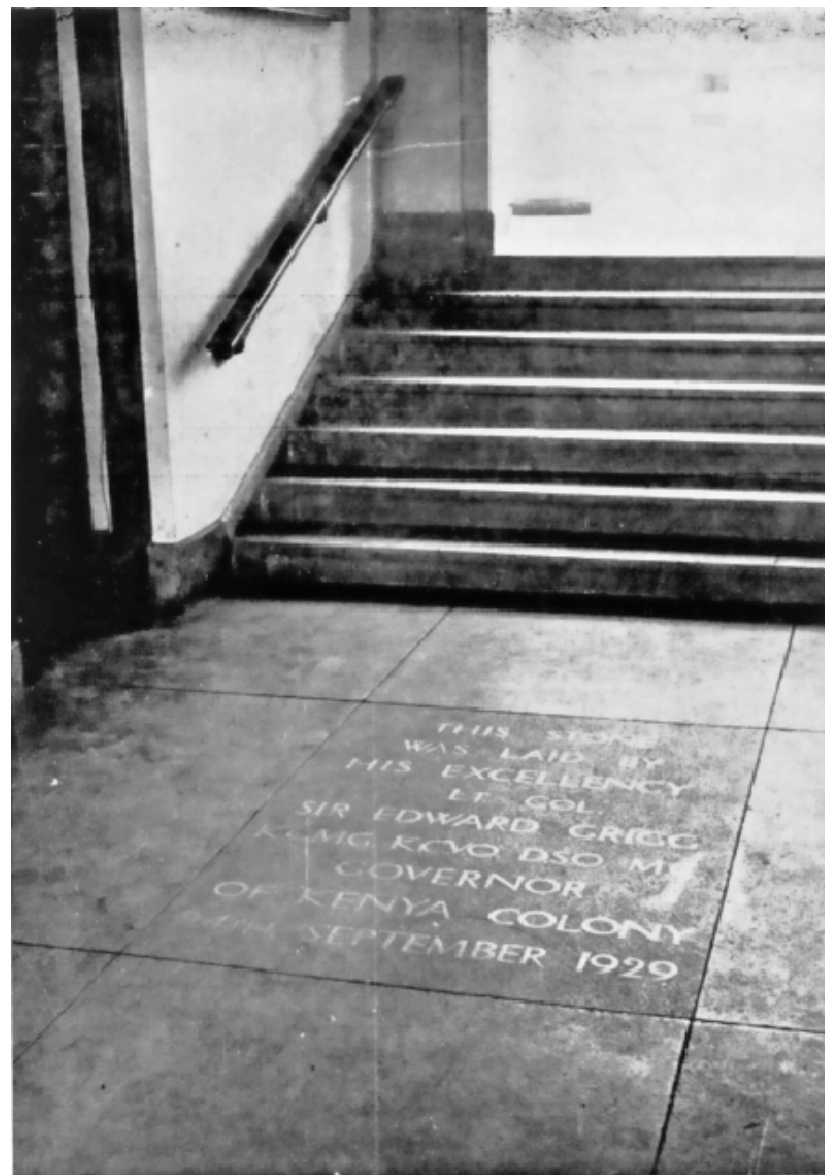 THIS
WAS LAID BY
HIS EXCELLENCY
LT COL
SIR EDWARD GRIGG
KCMG KCVO DSO MC
GOVERNOR
OF KENYA COLONY
SEPTEMBER 1929